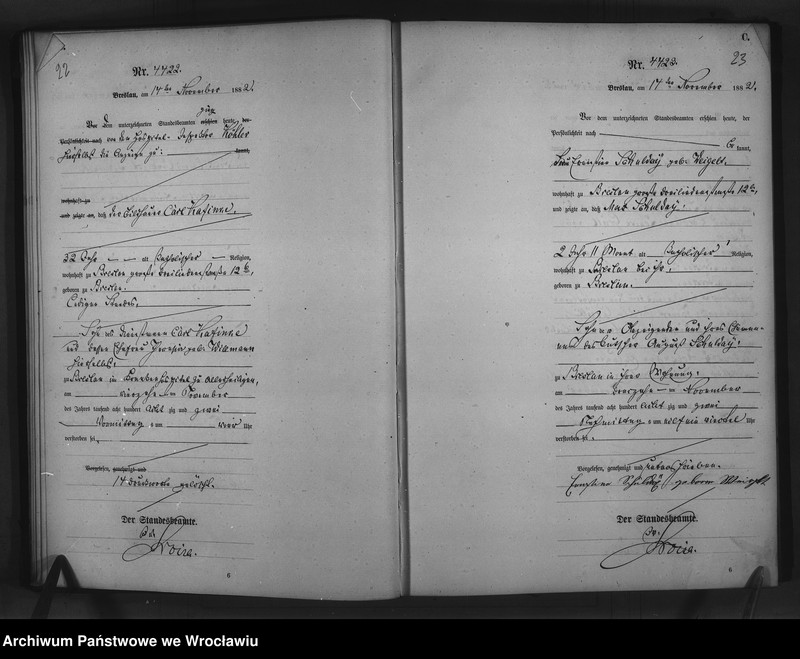 22
Nr. 4422.
Breslau, am 14ten November 1882.
Vor dem unterzeichneten Standesbeamten erschien heute, der
Persönlichkeit nach von dem Hospital-Inspector Köhler
hieselbst die Anzeige zu: kannt,
wohnhaft zu
und zeigte an, daß der Bildhauer Carl
32 Jahr alt katholischer Religion,
wohnhaft zu Breslau große Dreilindenstraße 12
geboren zu Breslau.
Ledigen Standes,
Sohn des Carl
und dessen Ehefrau geb. Willmann
hieselbst.
zu Breslau im Krankenhospital zu Allerheiligen,
am vierzehnten November
des Jahres tausend acht hundert acht zig und zwei
Vormittag s um Uhr
verstorben sei.
Vorgelesen, genehmigt und
14 Druckworte gelöscht.
Der Standesbeamte.
6
C.
23
Nr. 4423.
Breslau, am 14ten November 1882.
Vor dem unterzeichneten Standesbeamten erschien heute, der
Persönlichkeit nach
kannt,
Frau Ernestine Schulday geb. Weigelt,
wohnhaft zu Breslau große Dreilindenstraße 12
und zeigte an, daß Max Schulday,
2 Jahr 11 Monat alt katholischer Religion,
wohnhaft zu Breslau bei ihr,
geboren zu Breslau.
Sohn der Anzeigenden und ihres Ehemannes
des Kutscher August Schulday,
zu Breslau in ihrer Wohnung,
am dreizehnten November
des Jahres tausend acht hundert acht zig und zwei
Nachmittag s um elf Uhr
verstorben sei.
Vorgelesen, genehmigt und unterschrieben.
Ernstine Schulday geborne Weigelt
Der Standesbeamte.
6
Archiwum Państwowe we Wrocławiu